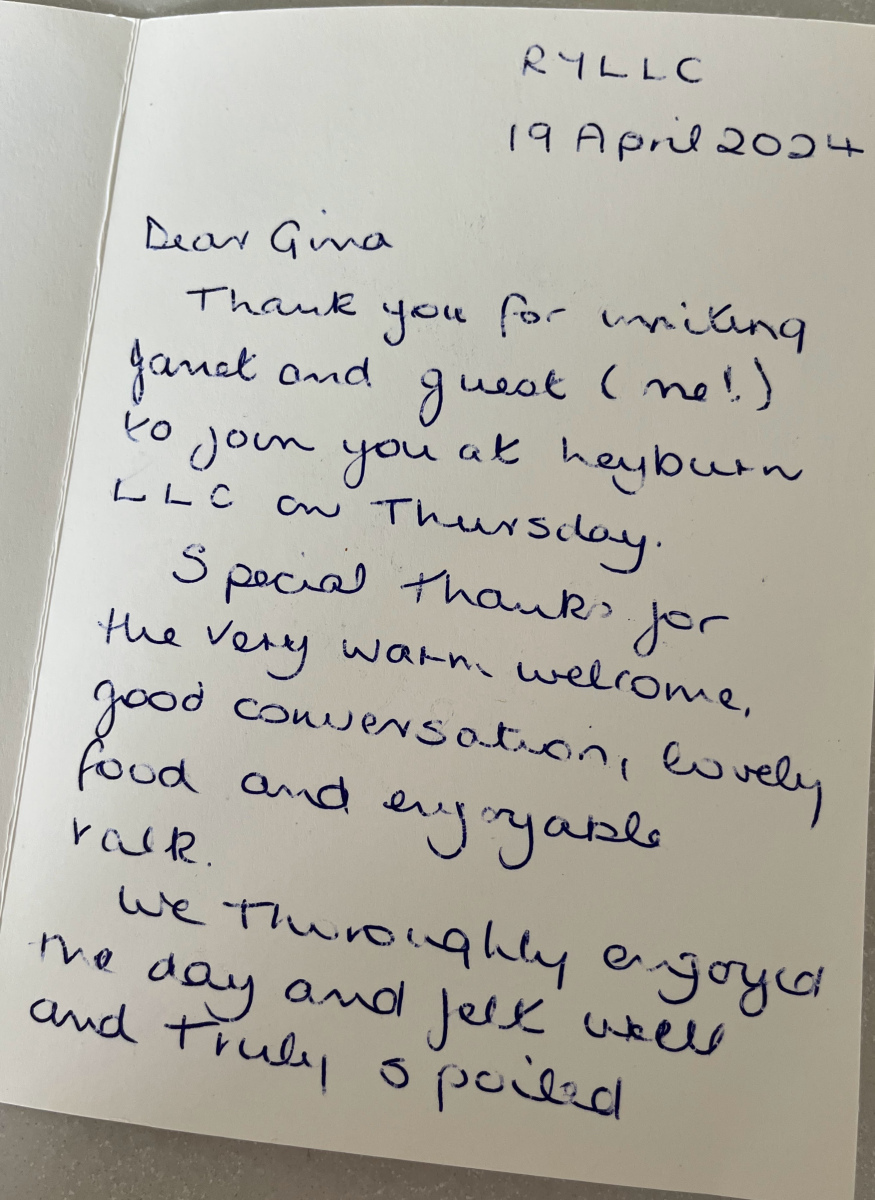 RYLLC
19 April 2024
Dear Gina
Thank you for inviting
Janet and guest (me!)
to join you at heyburn
LLC on Thursday.
Special thanks for
the very warm welcome,
good conversation, lovely
food and enjoyable
talk.
We thoroughly enjoyed
the day and felt well
and truly spoiled